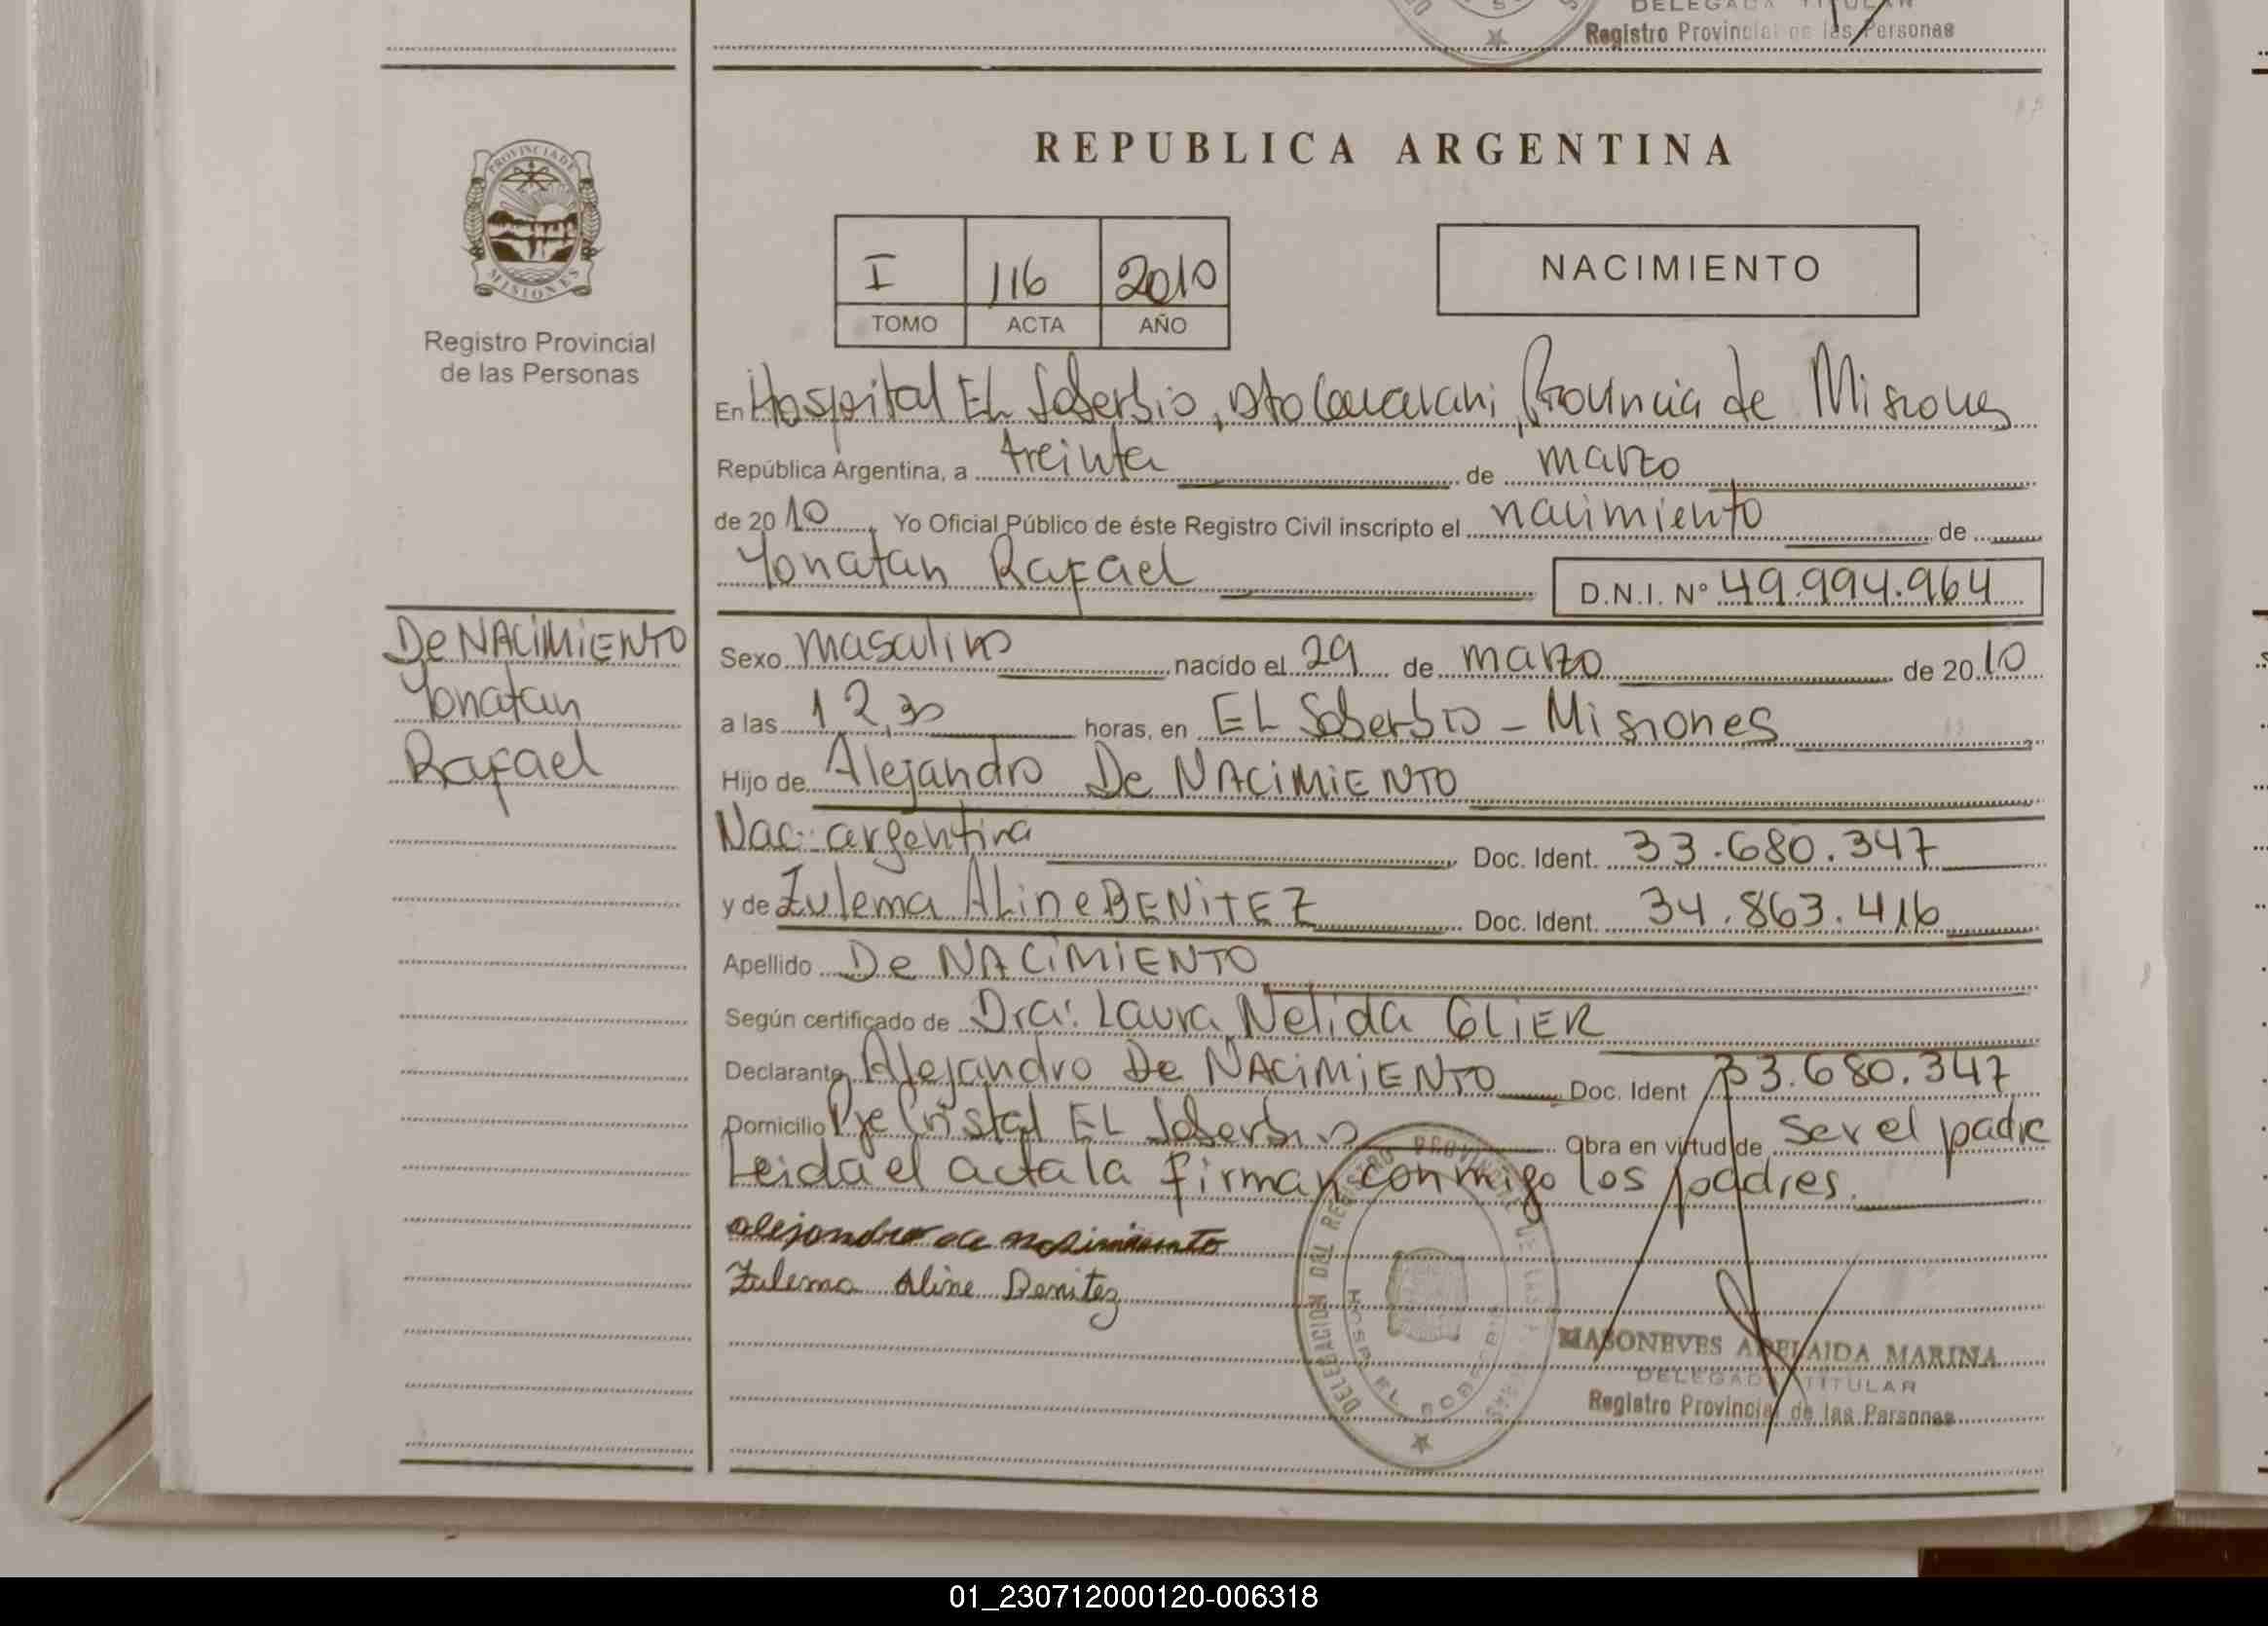 DELEGADA TITULAR
Registro Provincial de las Personas
PROVINCIA DE
MISIONES
Registro Provincial
de las Personas
REPUBLICA ARGENTINA
I 116 2010
TOMO ACTA AÑO
NACIMIENTO
En Hospital EL Soberbio, Dto Guarani, Provincia de Misiones
República Argentina, a treinta de marzo
de 2010 Yo Oficial Público de éste Registro Civil inscripto el nacimiento de
Yonatan Rafael D.N.I. N° 49.994.964
De NACIMIENTO
Yonatan
Rafael
Sexo masculino nacido el 29 de marzo de 2010
a las 12,30 horas, en EL Soberbio - Misiones
Hijo de Alejandro De NACIMIENTO
Nac: argentina Doc. Ident. 33.680.347
y de Zulema ALine BENITEZ Doc. Ident. 34.863.416
Apellido De NACIMIENTO
Según certificado de Dra: Laura Nelida GLIER
Declarante Alejandro De NACIMIENTO Doc. Ident 33.680.347
Domicilio Pje Cristal EL Soberbio Obra en virtud de ser el padre
Leida el acta la firman conmigo los padres.
alejandro de nasimiento
Zulema Aline Benitez
DELEGACION DEL REGISTRO PROVINCIAL DE LAS PERSONAS
HOSP. EL SOBERBIO
MASONEVES ADELAIDA MARINA
DELEGADA TITULAR
Registro Provincial de las Personas
01_230712000120-006318